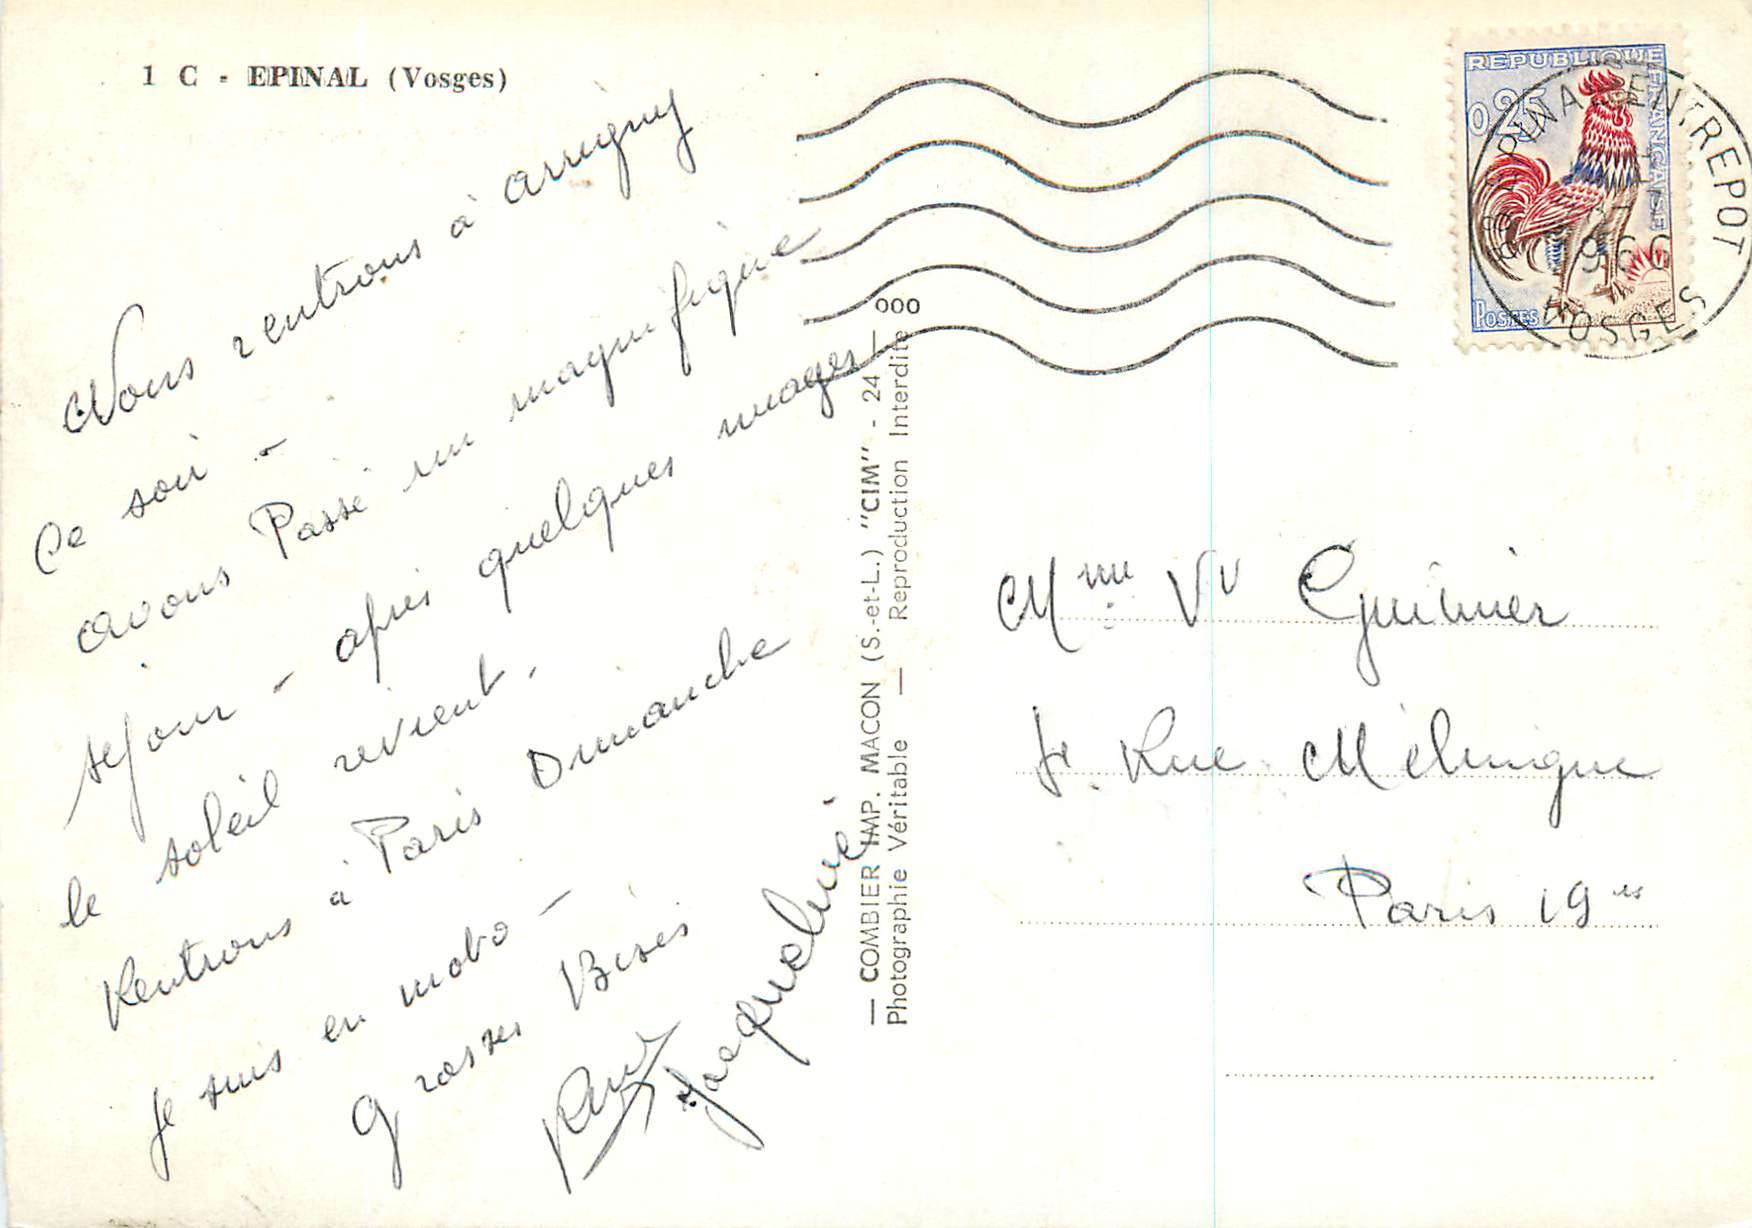 1 C - EPINAL (Vosges)
Nous rentrons à arrigny
ce soir -
avons Passé un magnifique
séjour - après quelques nuages
le soleil revient.
Rentrons à Paris Dimanche
Je suis en moto -
grosses Bises
Jacqueline
— COMBIER IMP. MACON (S.-et-L.) "CIM" - 24 — 000
Photographie Véritable — Reproduction Interdite
REPUBLIQUE FRANÇAISE
0,25
POSTES
EPINAL ENTREPOT
VOSGES
Mme Vv
Rue Mélingue
Paris 19es